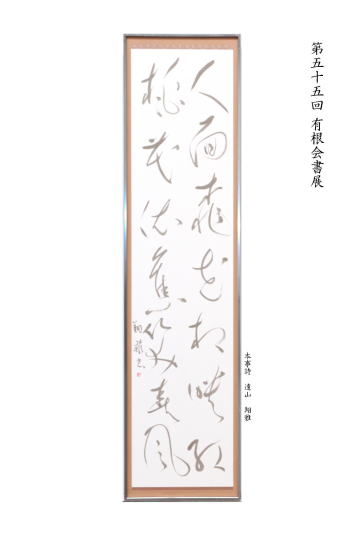 第五十五回 有根会書展
人面桃花相映紅
桃花依舊笑春風
本事詩 遠山 翔雅